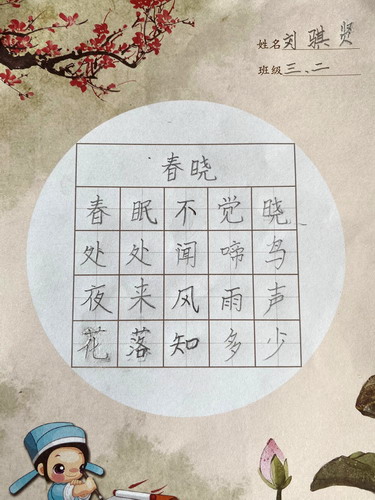 姓名刘骐贤
班级三、二
春晓
春眠不觉晓
处处闻啼鸟
夜来风雨声
花落知多少